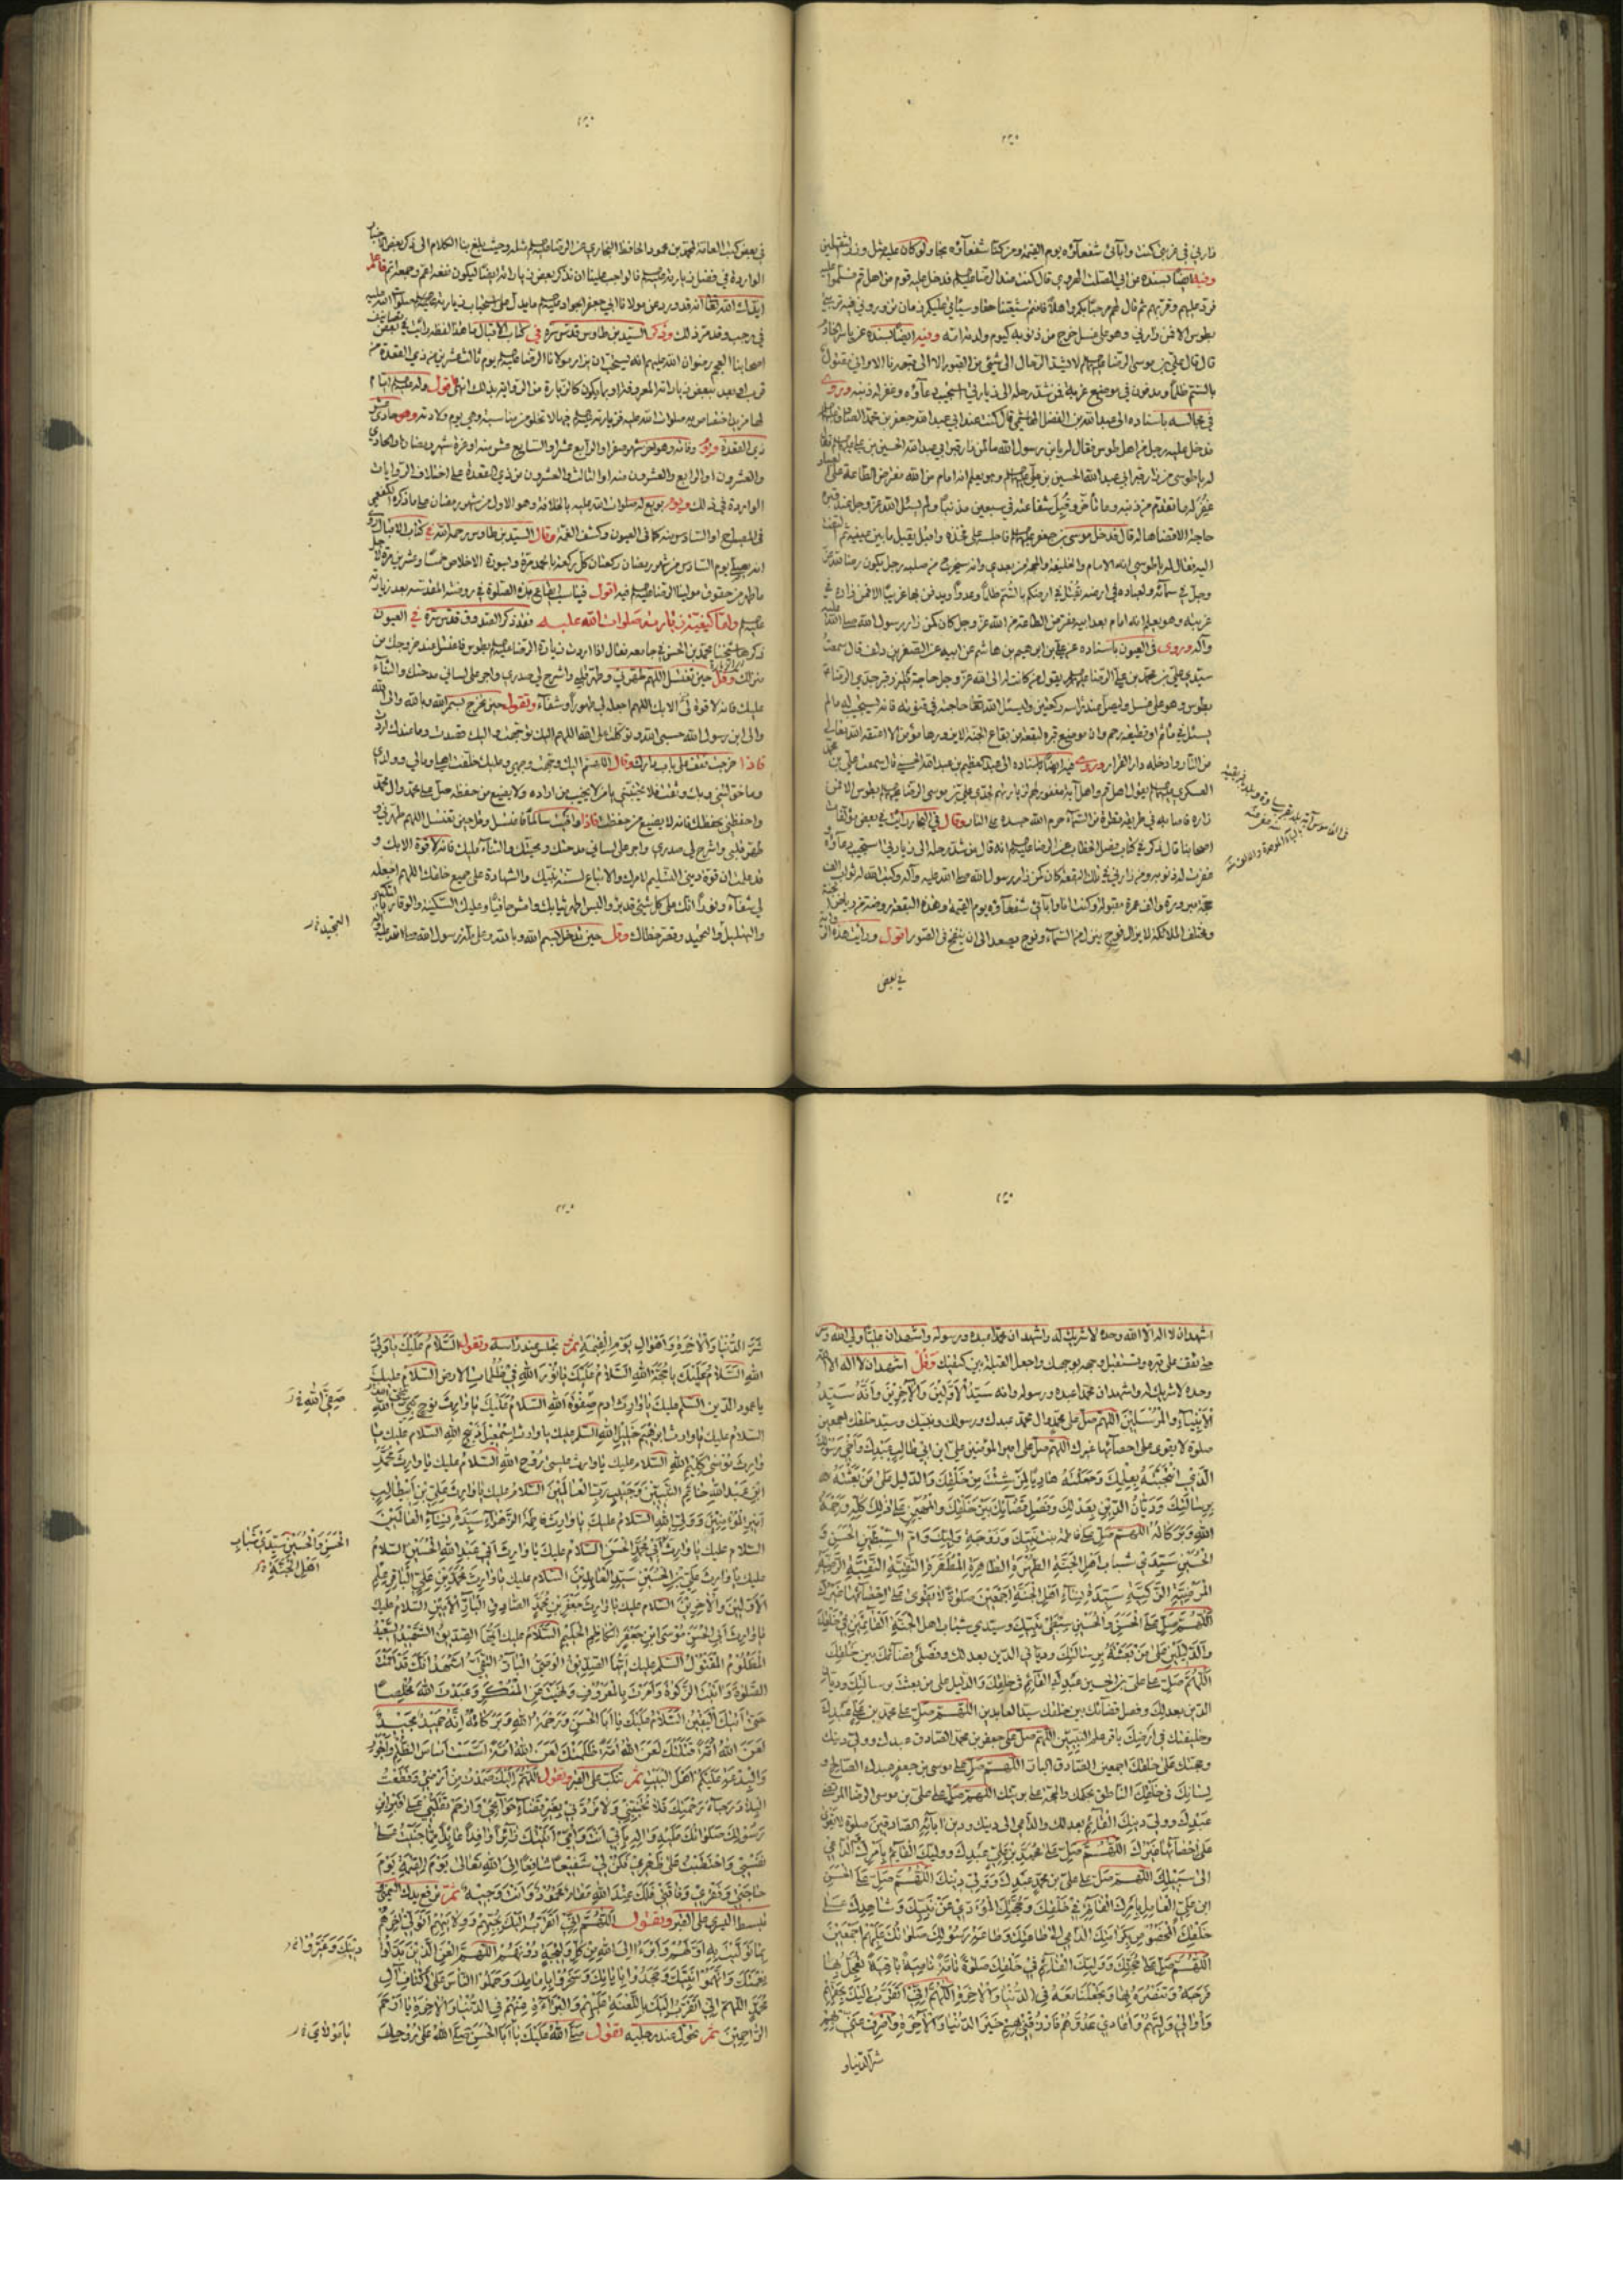 زارني في غربتي كنت وابائي شفعاؤه يوم القيمة ومن كنا شفعاؤه نجا ولو كان عليه مثل وزر الثقلين
وفيه ايضا بسنده من ابي الصلت الهروي قال كنت عند الرضا عليه السلم فدخل عليه قوم من اهل قم فسلموا عليه
فرد عليهم وقربهم ثم قال لهم مرحبا بكم واهلا فانتم شيعتنا حقا وسياتي عليكم زمان تزوروني فيه تربتي
بطوس الا فمن زارني وهو على غسل خرج من ذنوبه كيوم ولدته امه وفيه ايضا بسنده عن ياسر الخادم
قال قال علي بن موسى الرضا عليه السلم لا تشد الرحال الى شيئ من القبور الا الى قبورنا الا واني مقتول
بالسم ظلما ومدفون في موضع غربة فمن شد رحله الى زيارتي استجيب دعاؤه وغفر له ذنبه وروى
في مجالسه باسناده الى عبد الله بن الفضل الهاشمي قال كنت عند ابي عبد الله جعفر بن محمد الصادق
فدخل عليه رجل من اهل طوس فقال له يابن رسول الله ما لمن زار قبر ابي عبد الله الحسين بن علي عليهم السلم فقال
له يا طوسي من زار قبر ابي عبد الله الحسين بن علي عليه السلم وهو يعلم انه امام من الله مفترض الطاعة على العباد
غفر له ما تقدم من ذنبه وما تاخر وقبل شفاعته في سبعين مذنبا ولم يسئل الله عز وجل عند قبره
حاجة الا قضاها له قال فدخل موسى بن جعفر عليه السلم فاجلسه على فخذه واقبل يقبل ما بين عينيه ثم التفت
اليه فقال له يا طوسي انه الامام والخليفة والحجة من بعدي وانه سيخرج من صلبه رجل يكون رضا لله عز
وجل في سمائه ولعباده في ارضه يقتل في ارضكم بالسم ظلما وعدوانا ويدفن بها غريبا الا فمن زاره في
غربته وهو يعلم انه امام بعد ابيه مفترض الطاعة من الله عز وجل كان كمن زار رسول الله صلى الله عليه
وآله وروى في العيون باسناده عن علي بن ابراهيم بن هاشم عن ابيه عن الصقر بن دلف قال سمعت
سيدي علي بن محمد بن علي الرضا عليه السلم يقول من كانت له الى الله عز وجل حاجة فليزر قبر جدي الرضا
بطوس وهو على غسل وليصل عند راسه ركعتين وليسئل الله تعا حاجته في قنوته فانه يستجيب له ما لم
يسئل في ماثم او قطيعة رحم وان موضع قبره لبقعة من بقاع الجنة لا يزورها مؤمن الا اعتقه الله تعالى
من النار وادخله دار القرار وروى فيه ايضا باسناده الى عبد العظيم بن عبد الله الحسني قال سمعت علي بن محمد
العسكري عليه السلم يقول اهل قم واهل آبة مغفور لهم لزيارتهم لجدي علي بن موسى الرضا عليه السلم بطوس الا فمن
زاره فاصابه في طريقه قطرة من السماء حرم الله جسده على النار وقال في البحار رايت في بعض مؤلفات
اصحابنا قال ذكر في كتاب فصل الخطاب عن الرضا عليه السلم انه قال من شد رحله الى زيارتي استجيب دعاؤه
وغفرت له ذنوبه ومن زارني في تلك البقعة كان كمن زار رسول الله صلى الله عليه وآله وكتب الله له ثواب الف
حجة مبرورة والف عمرة مقبولة وكنت انا وابائي شفعاؤه يوم القيمة وهذه البقعة روضة من رياض الجنة
ومختلف الملائكة لا يزال فوج ينزل من السماء وفوج يصعد الى ان ينفخ في الصور اقول ورايت هذه
في بعض
في بعض كتب العامة لمحمد بن محمود الحافظ البخاري عن الرضا عليه السلم مثله وحيث بلغ بنا الكلام الى ذكر بعض الاخبار
الواردة في فضل زيارته عليه السلم فالواجب علينا ان نذكر بعض زياراته ايضا ليكون نفعه اعم وجمعه اتم فاعلم
ايدك الله تعا انه قد ورد عن مولانا ابي جعفر الجواد عليه السلم ما يدل على استحباب زيارته صلوات الله عليه
في رجب وقد مر ذلك وذكر السيد بن طاوس قدس سره في كتاب الاقبال ما هذا لفظه رايت في بعض تصانيف
اصحابنا العجم رضوان الله عليهم انه يستحب ان يزار مولانا الرضا عليه السلم يوم ثالث عشرين من ذي القعدة من
قرب او بعد ببعض زياراته المعروفة او بما يكون كالزيارة من الرواية بذلك انتهى اقول ولزيارته عليه السلم ايام
لها مزيد اختصاص به صلوات الله عليه فزيارته عليه السلم فيها لا تخلو من مناسبة وهي يوم ولادته وهو حادي عشر
ذي القعدة ويوم وفاته وهو اخر شهر صفر او الرابع عشر او السابع عشر منه او غرة شهر رمضان او الحادي
والعشرون او الرابع والعشرون منه او الثالث والعشرون من ذي القعدة على اختلاف الروايات
الواردة في ذلك ويوم بويع له صلوات الله عليه بالخلافة وهو الاول من شهر رمضان على ما ذكره الكفعمي
في المصباح او السادس منه كما في العيون وكشف الغمة وقال السيد بن طاوس رحمه الله في كتاب الاقبال روي
انه يصلى يوم السادس من شهر رمضان ركعتان كل ركعة بالحمد مرة وبسورة الاخلاص خمسا وعشرين مرة لاجل
ما ظهر من حقوق مولينا الرضا عليه السلم فيه اقول فيناسب ايقاع هذه الصلوة في روضته المقدسة بعد زيارته
عليه السلم واما كيفية زيارته صلوات الله عليه فقد ذكر الصدوق قدس سره في العيون
ذكرها شيخنا محمد بن الحسن في جامعه فقال اذا اردت زيارة الرضا عليه السلم بطوس فاغتسل عند خروجك من
منزلك وقل حين تغتسل اللهم طهرني وطهر قلبي واشرح لي صدري واجر على لساني مدحتك والثناء
عليك فانه لا قوة الا بك اللهم اجعله لي طهورا وشفاء وتقول حين تخرج بسم الله وبالله والى الله
والى ابن رسول الله حسبي الله توكلت على الله اللهم اليك توجهت واليك قصدت وما عندك اردت
فاذا خرجت فقف على باب دارك وقل اللهم اليك وجهت وجهي وعليك خلفت اهلي ومالي وولدي
وما خولتني وبك وثقت فلا تخيبني يا من لا يخيب من اراده ولا يضيع من حفظه صل على محمد وال محمد
واحفظني بحفظك فانه لا يضيع من حفظت فاذا وافيت سالما فاغتسل وقل حين تغتسل اللهم طهرني و
طهر قلبي واشرح لي صدري واجر على لساني مدحتك ومحبتك والثناء عليك فانه لا قوة الا بك و
قد علمت ان قوة ديني التسليم لامرك والاتباع لسنة نبيك والشهادة على جميع خلقك اللهم اجعله
لي شفاء ونورا انك على كل شيئ قدير والبس اطهر ثيابك وامش حافيا وعليك السكينة والوقار بالتكبير
والتهليل والتمجيد وقصر خطاك وقل حين تدخل بسم الله وبالله وعلى ملة رسول الله صلى الله عليه واله
اشهد ان لا اله الا الله وحده لا شريك له واشهد ان محمدا عبده ورسوله واشهد ان عليا ولي الله وسر
حتى تقف على قبره وتستقبل وجهه بوجهك واجعل القبلة بين كتفيك وقل اشهد ان لا اله الا الله
وحده لا شريك له واشهد ان محمدا عبده ورسوله وانه سيد الاولين والاخرين وانه سيد
الانبياء والمرسلين اللهم صل على محمد وال محمد عبدك ورسولك ونبيك وسيد خلقك اجمعين
صلوة لا يقوى على احصائها غيرك اللهم صل على امير المؤمنين علي بن ابي طالب عبدك واخي رسولك
الذي انتجبته بعلمك وجعلته هاديا لمن شئت من خلقك والدليل على من بعثته
برسالتك وديان الدين بعدلك وفصل قضائك بين خلقك والمهيمن على ذلك كله ورحمة
الله وبركاته اللهم صل على فاطمة بنت نبيك وزوجة وليك وام السبطين الحسن و
الحسين سيدي شباب اهل الجنة الطهرة الطاهرة المطهرة التقية النقية الرضية
المرضية الزكية سيدة نساء اهل الجنة اجمعين صلوة لا يقوى على احصائها غيرك
اللهم صل على الحسن والحسين سبطي نبيك وسيدي شباب اهل الجنة القائمين في خلقك
والدليلين على من بعثته برسالتك ودياني الدين بعدلك وفصلي قضائك بين خلقك
اللهم صل على علي بن الحسين عبدك القائم في خلقك والدليل على من بعثت برسالتك وديان
الدين بعدلك وفصل قضائك بين خلقك سيد العابدين اللهم صل على محمد بن علي عبدك
وخليفتك في ارضك باقر علم النبيين اللهم صل على جعفر بن محمد الصادق عبدك وولي دينك
وحجتك على خلقك اجمعين الصادق البار اللهم صل على موسى بن جعفر عبدك الصالح و
لسانك في خلقك الناطق بحكمك والحجة على بريتك اللهم صل على علي بن موسى الرضا المرتضى
عبدك وولي دينك القائم بعدلك والداعي الى دينك ودين ابائه الصادقين صلوة لا يقوى
على احصائها غيرك اللهم صل على محمد بن علي عبدك ووليك القائم بامرك الداعي
الى سبيلك اللهم صل على علي بن محمد عبدك وولي دينك اللهم صل على الحسن
ابن علي العامل بامرك القائم في خلقك وحجتك المؤدي عن نبيك وشاهدك على
خلقك المخصوص بكرامتك الداعي الى طاعتك وطاعة رسولك صلواتك عليهم اجمعين
اللهم صل على حجتك ووليك القائم في خلقك صلوة تامة نامية باقية تعجل بها
فرجه وتنصره بها وتجعلنا معه في الدنيا والاخرة اللهم اني اتقرب اليك بحبهم
واوالي وليهم واعادي عدوهم فارزقني بهم خير الدنيا والاخرة واصرف عني بهم
شر الدنيا و
شر الدنيا والاخرة واهوال يوم القيمة ثم تجلس عند راسه وتقول السلام عليك يا ولي
الله السلام عليك يا حجة الله السلام عليك يا نور الله في ظلمات الارض السلام عليك
يا عمود الدين السلم عليك يا وارث ادم صفوة الله السلام عليك يا وارث نوح نبي الله
السلام عليك يا وارث ابراهيم خليل الله السلم عليك يا وارث اسمعيل ذبيح الله السلام عليك يا
وارث موسى كليم الله السلام عليك يا وارث عيسى روح الله السلام عليك يا وارث محمد
ابن عبد الله خاتم النبيين وحبيب رب العالمين السلام عليك يا وارث علي بن ابيطالب
امير المؤمنين وولي الله السلام عليك يا وارث فاطمة الزهراء سيدة نساء العالمين
السلام عليك يا وارث ابي محمد الحسن السلام عليك يا وارث ابي عبد الله الحسين السلام
عليك يا وارث علي بن الحسين سيد العابدين السلام عليك يا وارث محمد بن علي الباقر علم
الاولين والاخرين السلام عليك يا وارث جعفر بن محمد الصادق البار الامين السلام عليك
يا وارث ابي الحسن موسى ابن جعفر الكاظم الحليم السلام عليك ايها الصديق الشهيد السعيد
المظلوم المقتول السلم عليك ايها الصديق الوصي البار التقي اشهد انك قد اقمت
الصلوة واتيت الزكوة وامرت بالمعروف ونهيت عن المنكر وعبدت الله مخلصا
حتى اتيك اليقين السلام عليك يا ابا الحسن ورحمة الله وبركاته انه حميد مجيد
لعن الله امة قتلتك لعن الله امة ظلمتك لعن الله امة اسست اساس الظلم والجور
والبدعة عليكم اهل البيت ثم تنكب على القبر وتقول اللهم اليك صمدت من ارضي وقطعت
البلاد رجاء رحمتك فلا تخيبني ولا تردني بغير قضاء حوائجي وارحم تقلبي على قبر ابن
رسولك صلواتك عليه واله بابي انت وامي اتيتك زائرا وافدا عائذا مما جنيت على
نفسي واحتطبت على ظهري فكن لي شفيعا شافعا الى الله تعالى يوم القيمة يوم
حاجتي وفقري وفاقتي فلك عند الله مقام محمود وانت وجيه ثم ترفع يدك اليمنى
وتبسط اليسرى على القبر وتقول اللهم اني اتقرب اليك بحبهم وولايتهم اتولى اخرهم
بما توليت به اولهم وابرء الى الله من كل وليجة دونهم اللهم العن الذين بدلوا
نعمتك واتهموا نبيك وجحدوا اياتك وسخروا بامامك وحملوا الناس على اكتاف ال
محمد اللهم اني اتقرب اليك باللعنة عليهم والبرائة منهم في الدنيا والاخرة يا ارحم
الراحمين ثم تحول عند رجليه تقول صلى الله عليك يا ابا الحسن صلى الله على روحك
صفي الله خ ر
الحسن والحسين سيدي شباب
اهل الجنة خ ر
دينك وغيروا خ ر
يا مولاي خ ر